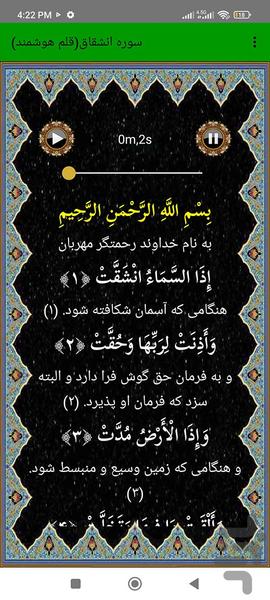 4:22 PM
سوره انشقاق(قلم هوشمند)
0m,2s
بِسْمِ اللَّهِ الرَّحْمَنِ الرَّحِيمِ
به نام خداوند رحمتگر مهربان
إِذَا السَّمَاءُ انْشَقَّتْ ﴿۱﴾
هنگامی که آسمان شکافته شود. (۱)
وَأَذِنَتْ لِرَبِّهَا وَحُقَّتْ ﴿۲﴾
و به فرمان حق گوش فرا دارد و البته
سزد که فرمان او پذیرد. (۲)
وَإِذَا الْأَرْضُ مُدَّتْ ﴿۳﴾
و هنگامی که زمین وسیع و منبسط شود.
(۳)